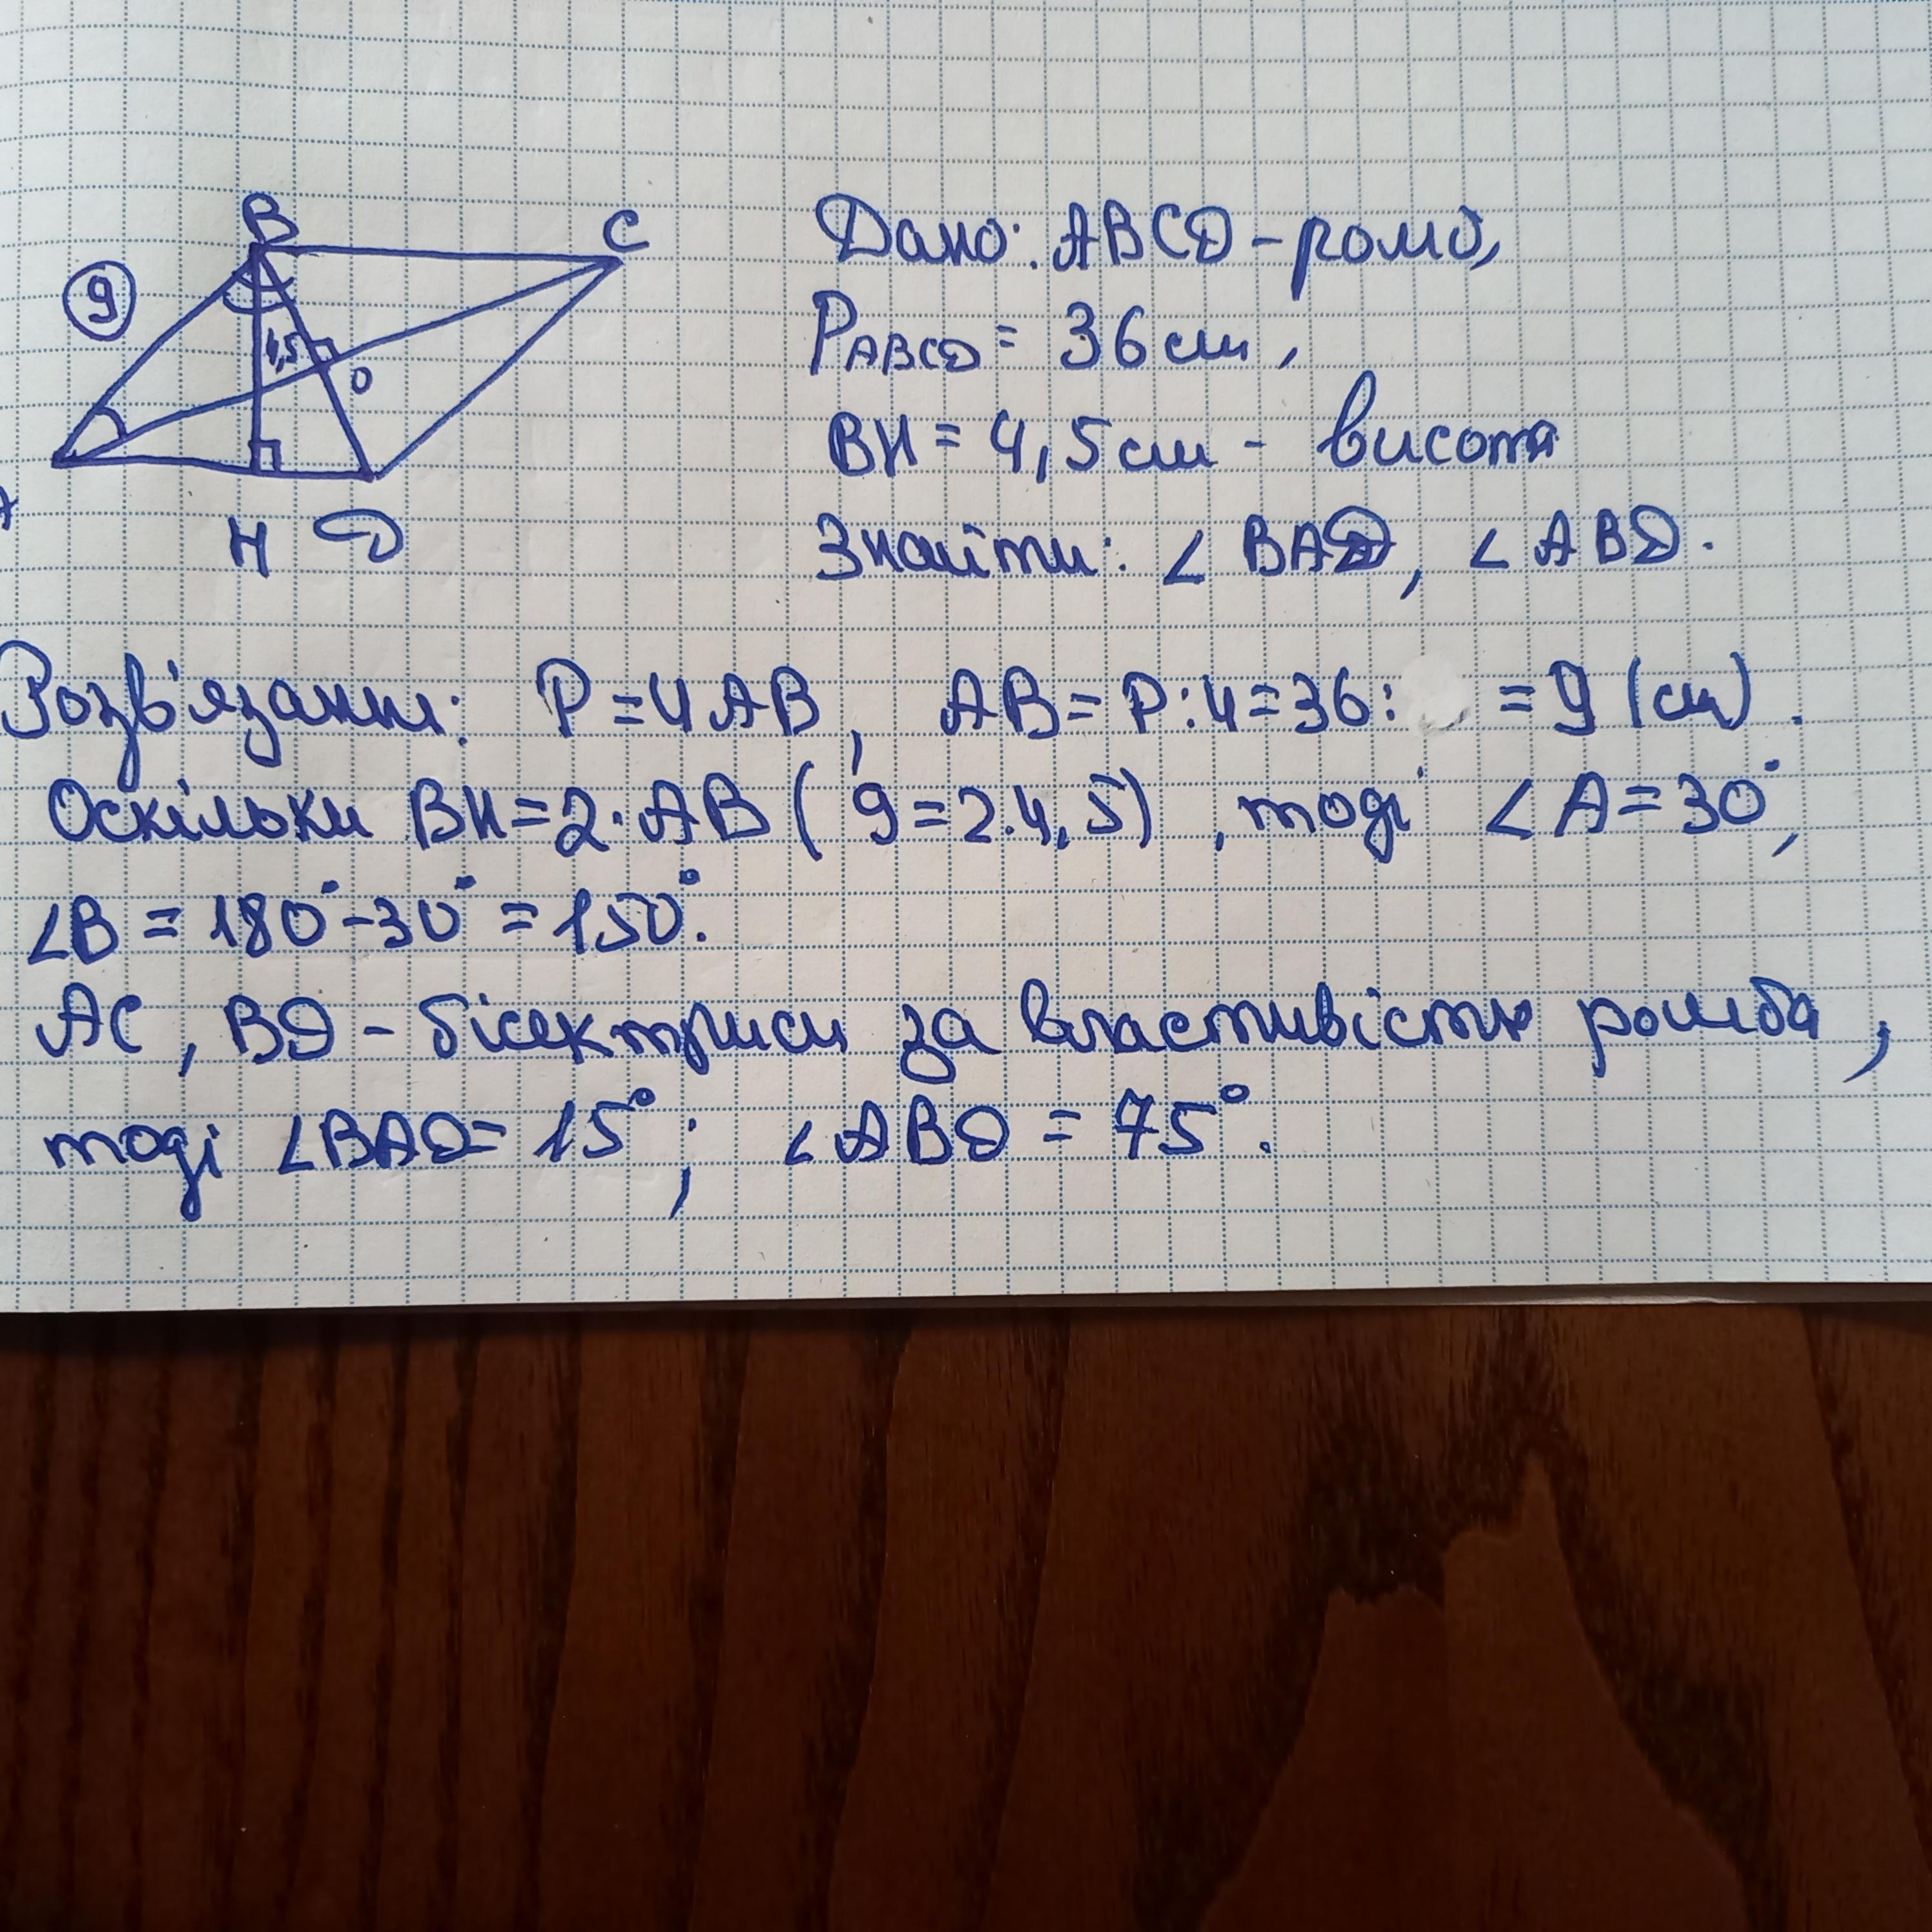 B
C
9
4,5
O
A
H D
Дано: ABCD - ромб,
PABCD = 36 см,
BH = 4,5 см - висота
Знайти: ∠ BAD, ∠ ABD.
Розв'язання: P = 4 AB, AB = P : 4 = 36 : = 9 (см).
Оскільки BH = 2 · AB ( 9 = 2 · 4,5) , тоді ∠ A = 30°,
∠B = 180° - 30° = 150°.
AC , BD - бісектриси за властивістю ромба ,
тоді ∠BAD = 15° ; ∠ ABD = 75° .